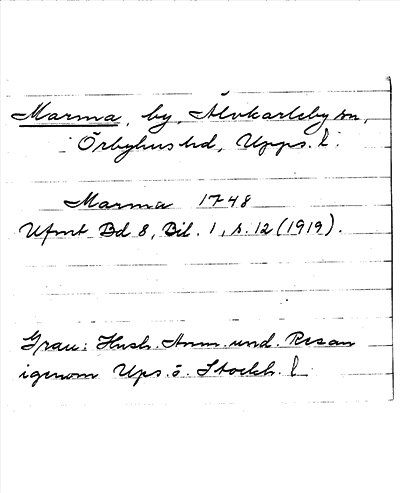 Marma, by, Älvkarleby sn,
Örbyhus hd, Upps. l.
Marma 1748
Ufmt Bd 8, Bil. 1, s. 12 (1919).
Grau: Hush. Anm. und. Resan
igenom Ups. o. Stockh. l.